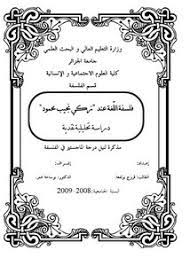 وزارة التعليم العالي و البحث العلمي
جامعة الجزائر
كلية العلوم الاجتماعية و الإنسانية
قسم الفلسفة
فلسفة اللغة عند "زكي نجيب محمود"
دراسة تحليلية نقدية
مذكرة لنيل درجة الماجستير في الفلسفة
إعداد:
إشراف:
الطالب:
الدكتور:
السنة الجامعية: 2008-2009